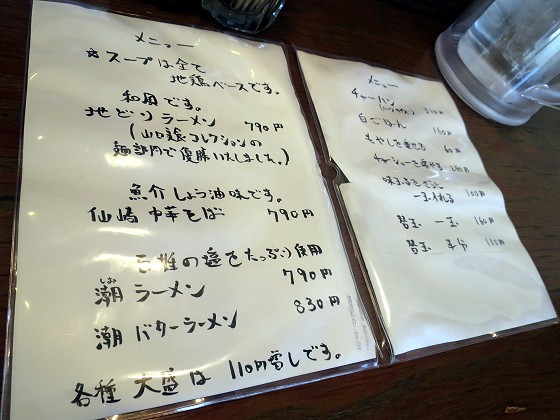 メニュー
☆スープは全て
地鶏ベースです。
和風です。
地どりラーメン 790円
(山口県コレクションの
麺部門で優勝いたしました。)
魚介しょう油味です。
仙崎中華そば 790円
百姓の塩をたっぷり使用
しお
潮ラーメン 790円
潮バターラーメン 830円
各種 大盛は 110円増しです。
メニュー
チャーハン
白ごはん 160円
もやしを乗せる 60円
チャーシューを乗せる
味玉
一玉入れる 100円
替玉 一玉 160円
替玉 半分 110円